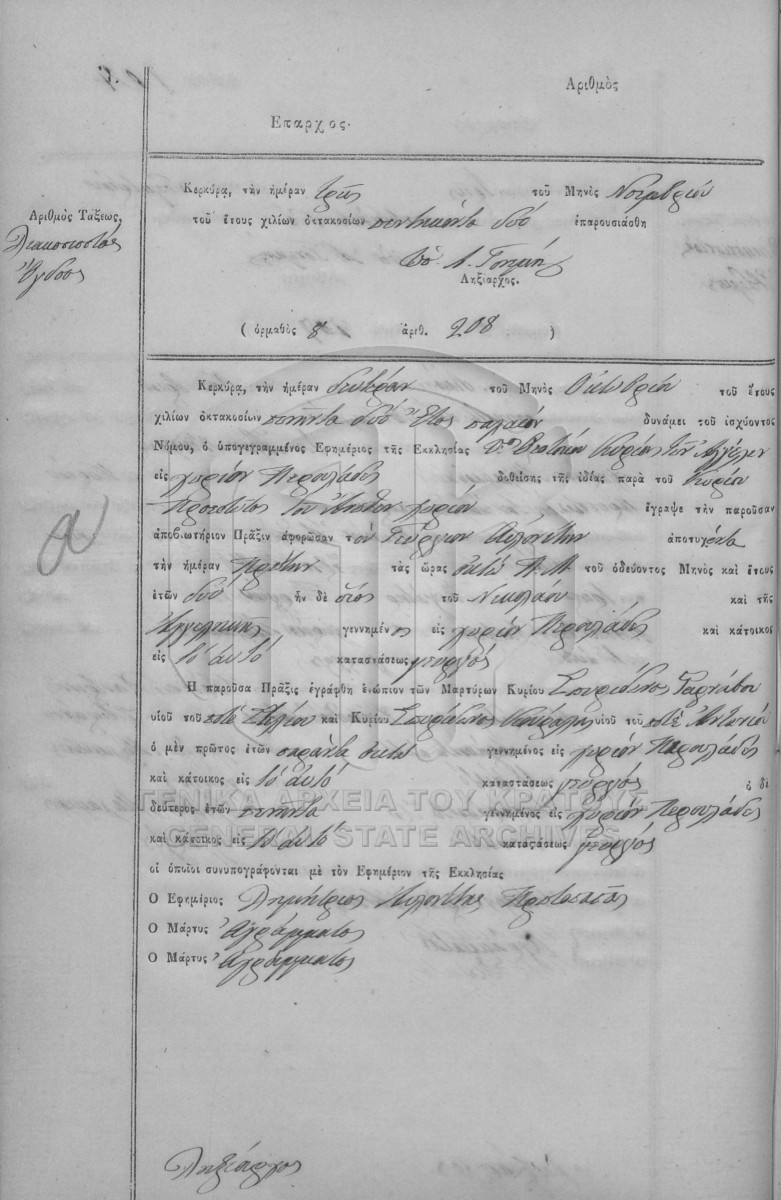 Αριθμὸς
Επαρχος.
Αριθμὸς Τάξεως,
Διακοσιοστός
Ὄγδοος
Κερκύρα, τὴν ἡμέραν τρεῖς τοῦ Μηνὸς Νοεμβρίου
τοῦ ἔτους χιλίων ὀκτακοσίων πεντηκόντα δύο ἐπαρουσιάσθη
Ληξίαρχος.
( ὁρμαθὸς 8 ἀριθ. 208 )
Κερκύρα, τὴν ἡμέραν δευτέραν τοῦ Μηνὸς Οκτωβρίου τοῦ ἔτους
χιλίων ὀκτακοσίων πενῆντα δύο Ἔτος παλαιόν δυνάμει τοῦ ἰσχύοντος
Νόμου, ὁ ὑπογεγραμμένος Εφημέριος τῆς Εκκλησίας τῶν Αγγέλων
εἰς χωρίον Περουλάδες δοθείσης τῆς ἰδέας παρὰ τοῦ Κυρίου
Προεστῶτος χωρίου ἔγραψε τὴν παροῦσαν
ἀποβιωτήριον Πρᾶξιν ἀφορῶσαν τὸν Γεώργιον Αυλονίτην ἀποτυχόντα
τὴν ἡμέραν Πρώτην τὰς ὥρας ὀκτώ Π.Μ. τοῦ ὁδεύοντος Μηνὸς καὶ ἔτους
ἐτῶν δύο ἦν δὲ υἱός τοῦ Νικολάου καὶ τῆς
Αγγελικῆς γεννημένος εἰς χωρίον Περουλάδες καὶ κάτοικος
εἰς τὸ αὐτό καταστάσεως γεωργός
Ἡ παροῦσα Πρᾶξις ἐγράφθη ἐνώπιον τῶν Μαρτύρων Κυρίου Σπυρίδωνος
υἱοῦ τοῦ ποτέ Στελίου καὶ Κυρίου Σπυρίδωνος υἱοῦ τοῦ ποτέ Αντωνίου
ὁ μὲν πρῶτος ἐτῶν σαράντα οκτώ γεννημένος εἰς χωρίον Περουλάδες
καὶ κάτοικος εἰς τὸ αὐτό καταστάσεως γεωργός ὁ δὲ
δεύτερος ἐτῶν πενῆντα γεννημένος εἰς χωρίον Περουλάδες
καὶ κάτοικος εἰς τὸ αὐτό καταστάσεως γεωργός
οἱ ὁποῖοι συνυπογράφονται μὲ τὸν Εφημέριον τῆς Εκκλησίας
Ο Εφημέριος Δημήτριος Αυλονίτης Πρωτοπαπᾶς
Ο Μάρτυς Ἀγράμματος
Ο Μάρτυς Ἀγράμματος
Ληξίαρχος
ΓΕΝΙΚΑ ΑΡΧΕΙΑ ΤΟΥ ΚΡΑΤΟΥΣ
GENERAL STATE ARCHIVES